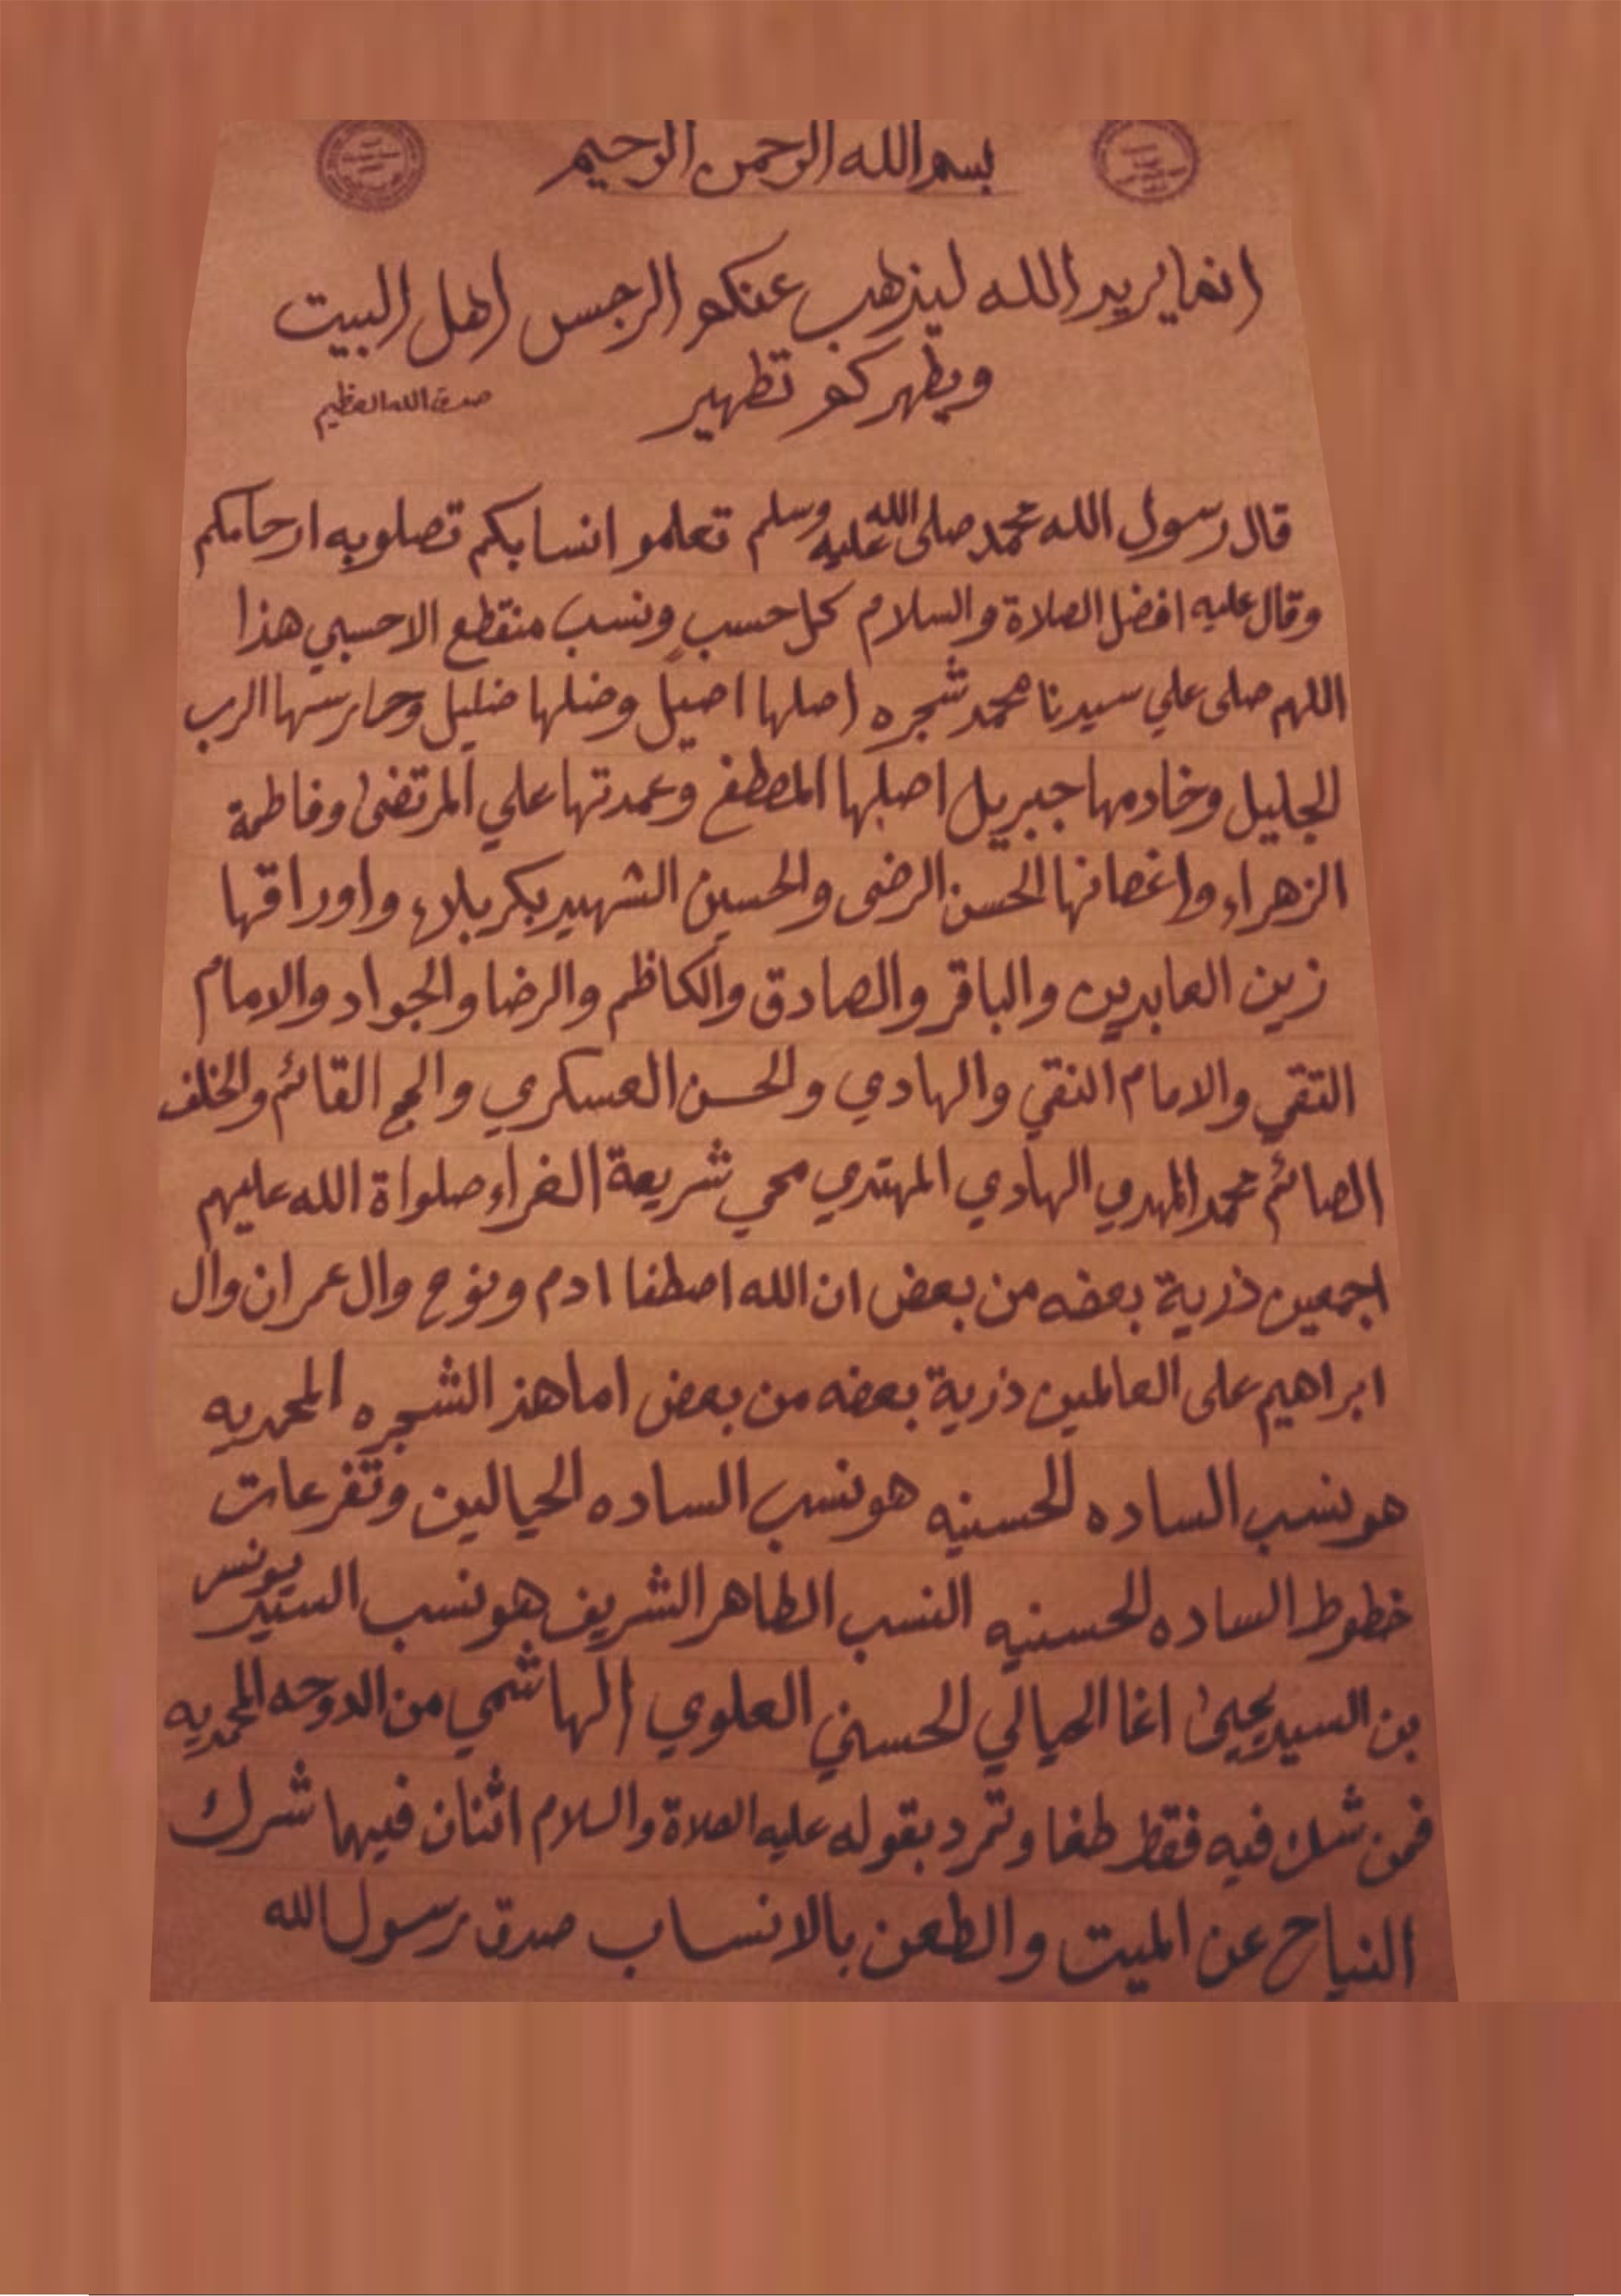 بسم الله الرحمن الرحيم
انما يريد الله ليذهب عنكم الرجس اهل البيت
ويطهركم تطهير
صدق الله العظيم
قال رسول الله محمد صلى الله عليه وسلم تعلمو انسابكم تصلو به ارحامكم
وقال عليه افضل الصلاة والسلام كل حسب ونسب منقطع الا حسبي هذا
اللهم صلى علي سيدنا محمد شجره اصلها اصيل وضلها ضليل وحارسها الرب
الجليل وخادمها جبريل اصلها المصطفى وعمدتها علي المرتضى وفاطمة
الزهراء واغصانها الحسن الرضى والحسين الشهيد بكربلاء واوراقها
زين العابدين والباقر والصادق والكاظم والرضا والجواد والامام
التقي والامام النقي والهادي والحسن العسكري والحج القائم والخلف
الصائم محمد المهدي الهادي المهتدي محي شريعة الغراء صلواة الله عليهم
اجمعين ذرية بعضه من بعض ان الله اصطفا ادم ونوح وال عمران وال
ابراهيم على العالمين ذرية بعضه من بعض اما هذ الشجره المحمديه
هو نسب الساده الحسنيه هو نسب الساده الحيالين وتفرعات
خطوط الساده الحسنيه النسب الطاهر الشريف هو نسب السيد يونس
بن السيد يحيى اغا الحيالي الحسني العلوي الهاشمي من الدوحه المحمديه
فمن شك فيه فقط طغا وتمرد بقوله عليه الصلاة والسلام اثنان فيهما شرك
النياح عن الميت والطعن بالانساب صدق رسول الله